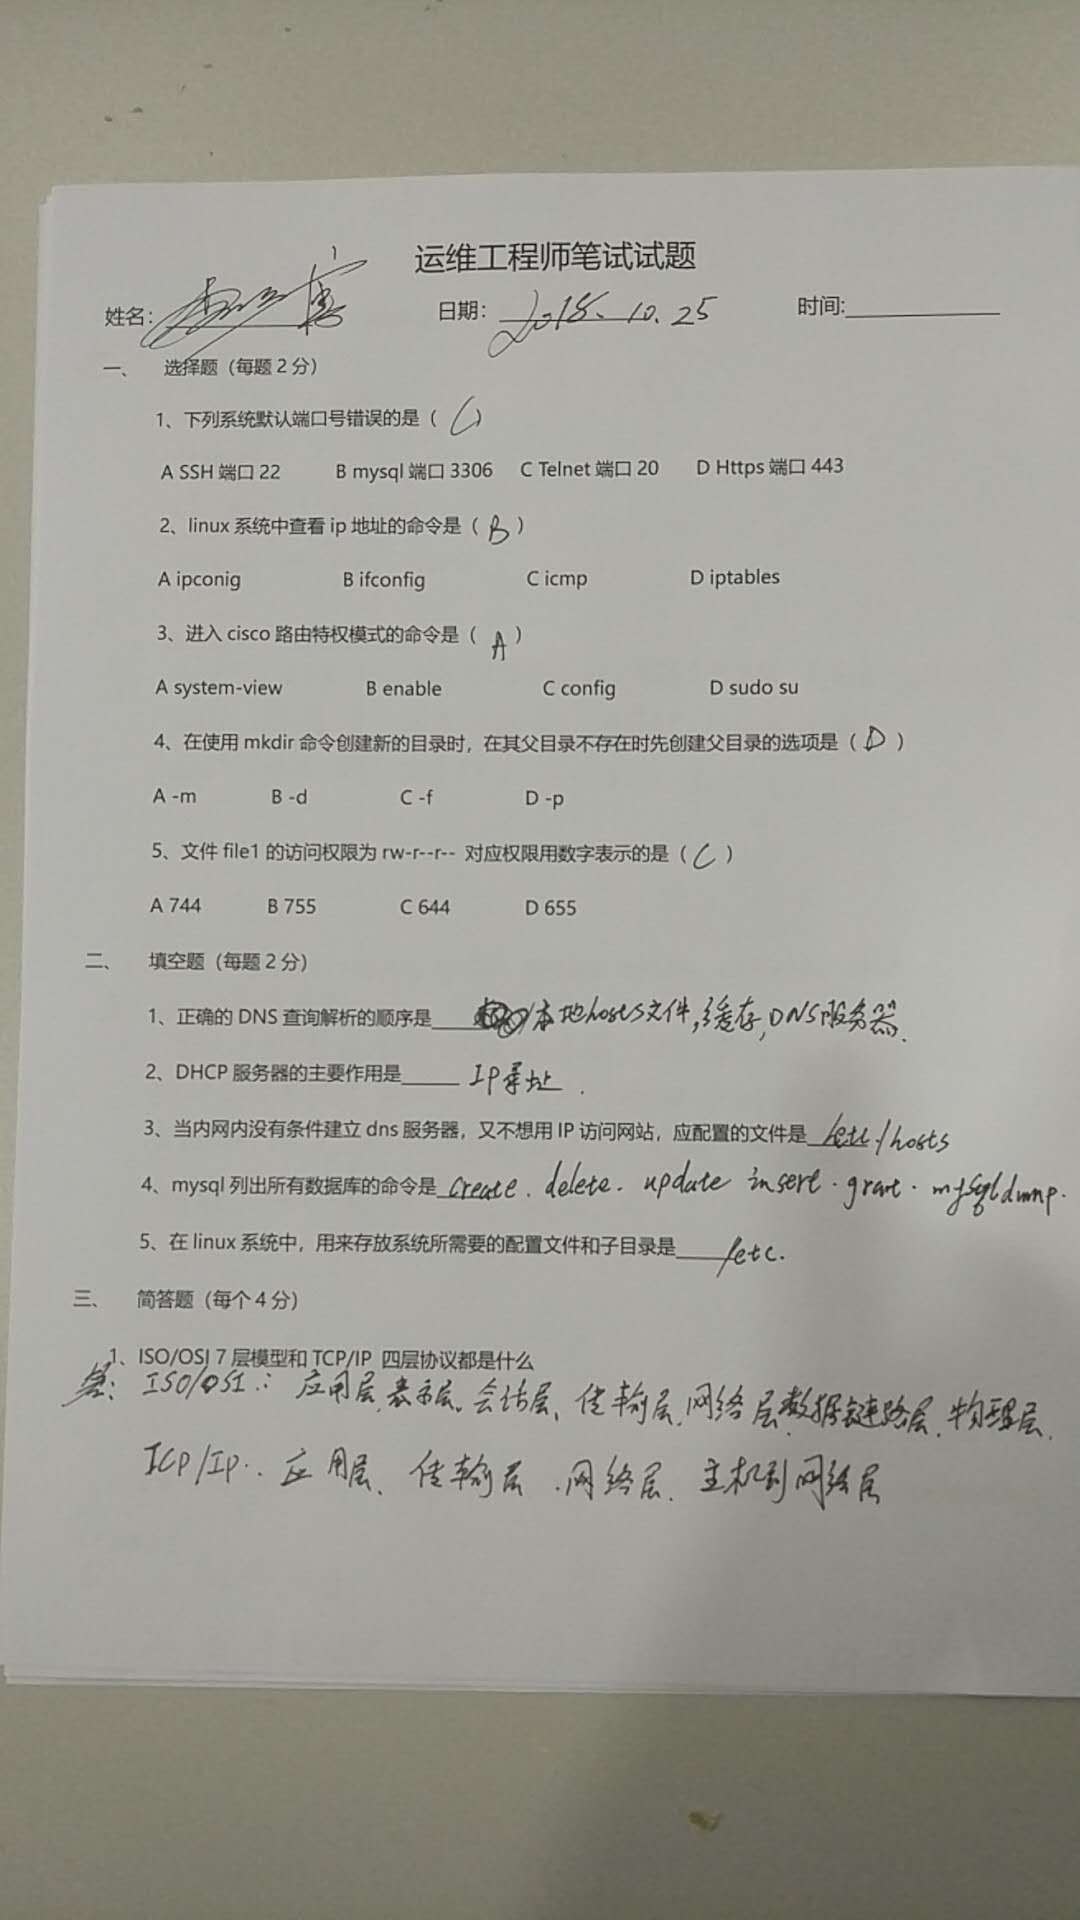 运维工程师笔试试题
姓名: 日期: 2018.10.25 时间:
一、 选择题（每题2分）
1、下列系统默认端口号错误的是（ C ）
A SSH 端口 22 B mysql 端口 3306 C Telnet 端口 20 D Https 端口 443
2、linux 系统中查看 ip 地址的命令是（ B ）
A ipconig B ifconfig C icmp D iptables
3、进入 cisco 路由特权模式的命令是（ A ）
A system-view B enable C config D sudo su
4、在使用 mkdir 命令创建新的目录时，在其父目录不存在时先创建父目录的选项是（ D ）
A -m B -d C -f D -p
5、文件 file1 的访问权限为 rw-r--r-- 对应权限用数字表示的是（ C ）
A 744 B 755 C 644 D 655
二、 填空题（每题2分）
1、正确的 DNS 查询解析的顺序是 本地hosts文件,缓存,DNS服务器.
2、DHCP 服务器的主要作用是 IP 址.
3、当内网内没有条件建立 dns 服务器，又不想用 IP 访问网站，应配置的文件是 /etc/hosts
4、mysql 列出所有数据库的命令是 create. delete. update insert. grant. mysqldump.
5、在 linux 系统中，用来存放系统所需要的配置文件和子目录是 /etc.
三、 简答题（每个4分）
1、ISO/OSI 7 层模型和 TCP/IP 四层协议都是什么
答: ISO/OSI: 应用层.表示层.会话层、传输层.网络层.数据链路层.物理层.
TCP/IP: 应用层、传输层.网络层、主机到网络层